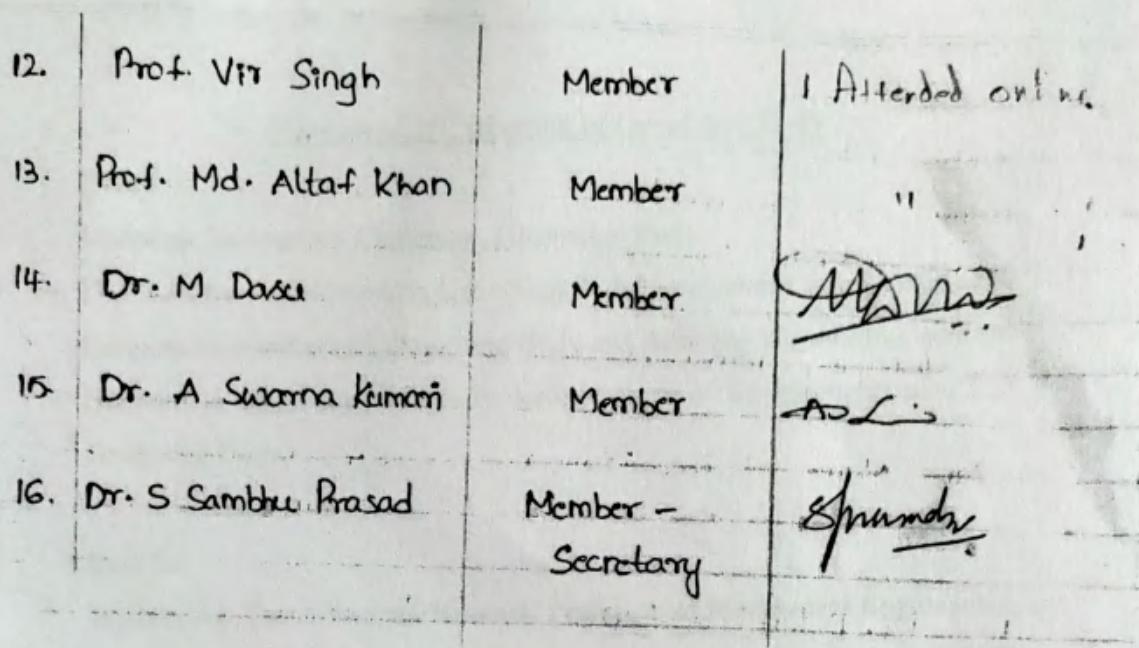 12. Prof. Vir Singh Member Attended online
13. Prof. Md. Altaf Khan Member "
14. Dr. M Dasu Member
15. Dr. A Swarna Kumari Member
16. Dr. S Sambhu Prasad Member -
Secretary